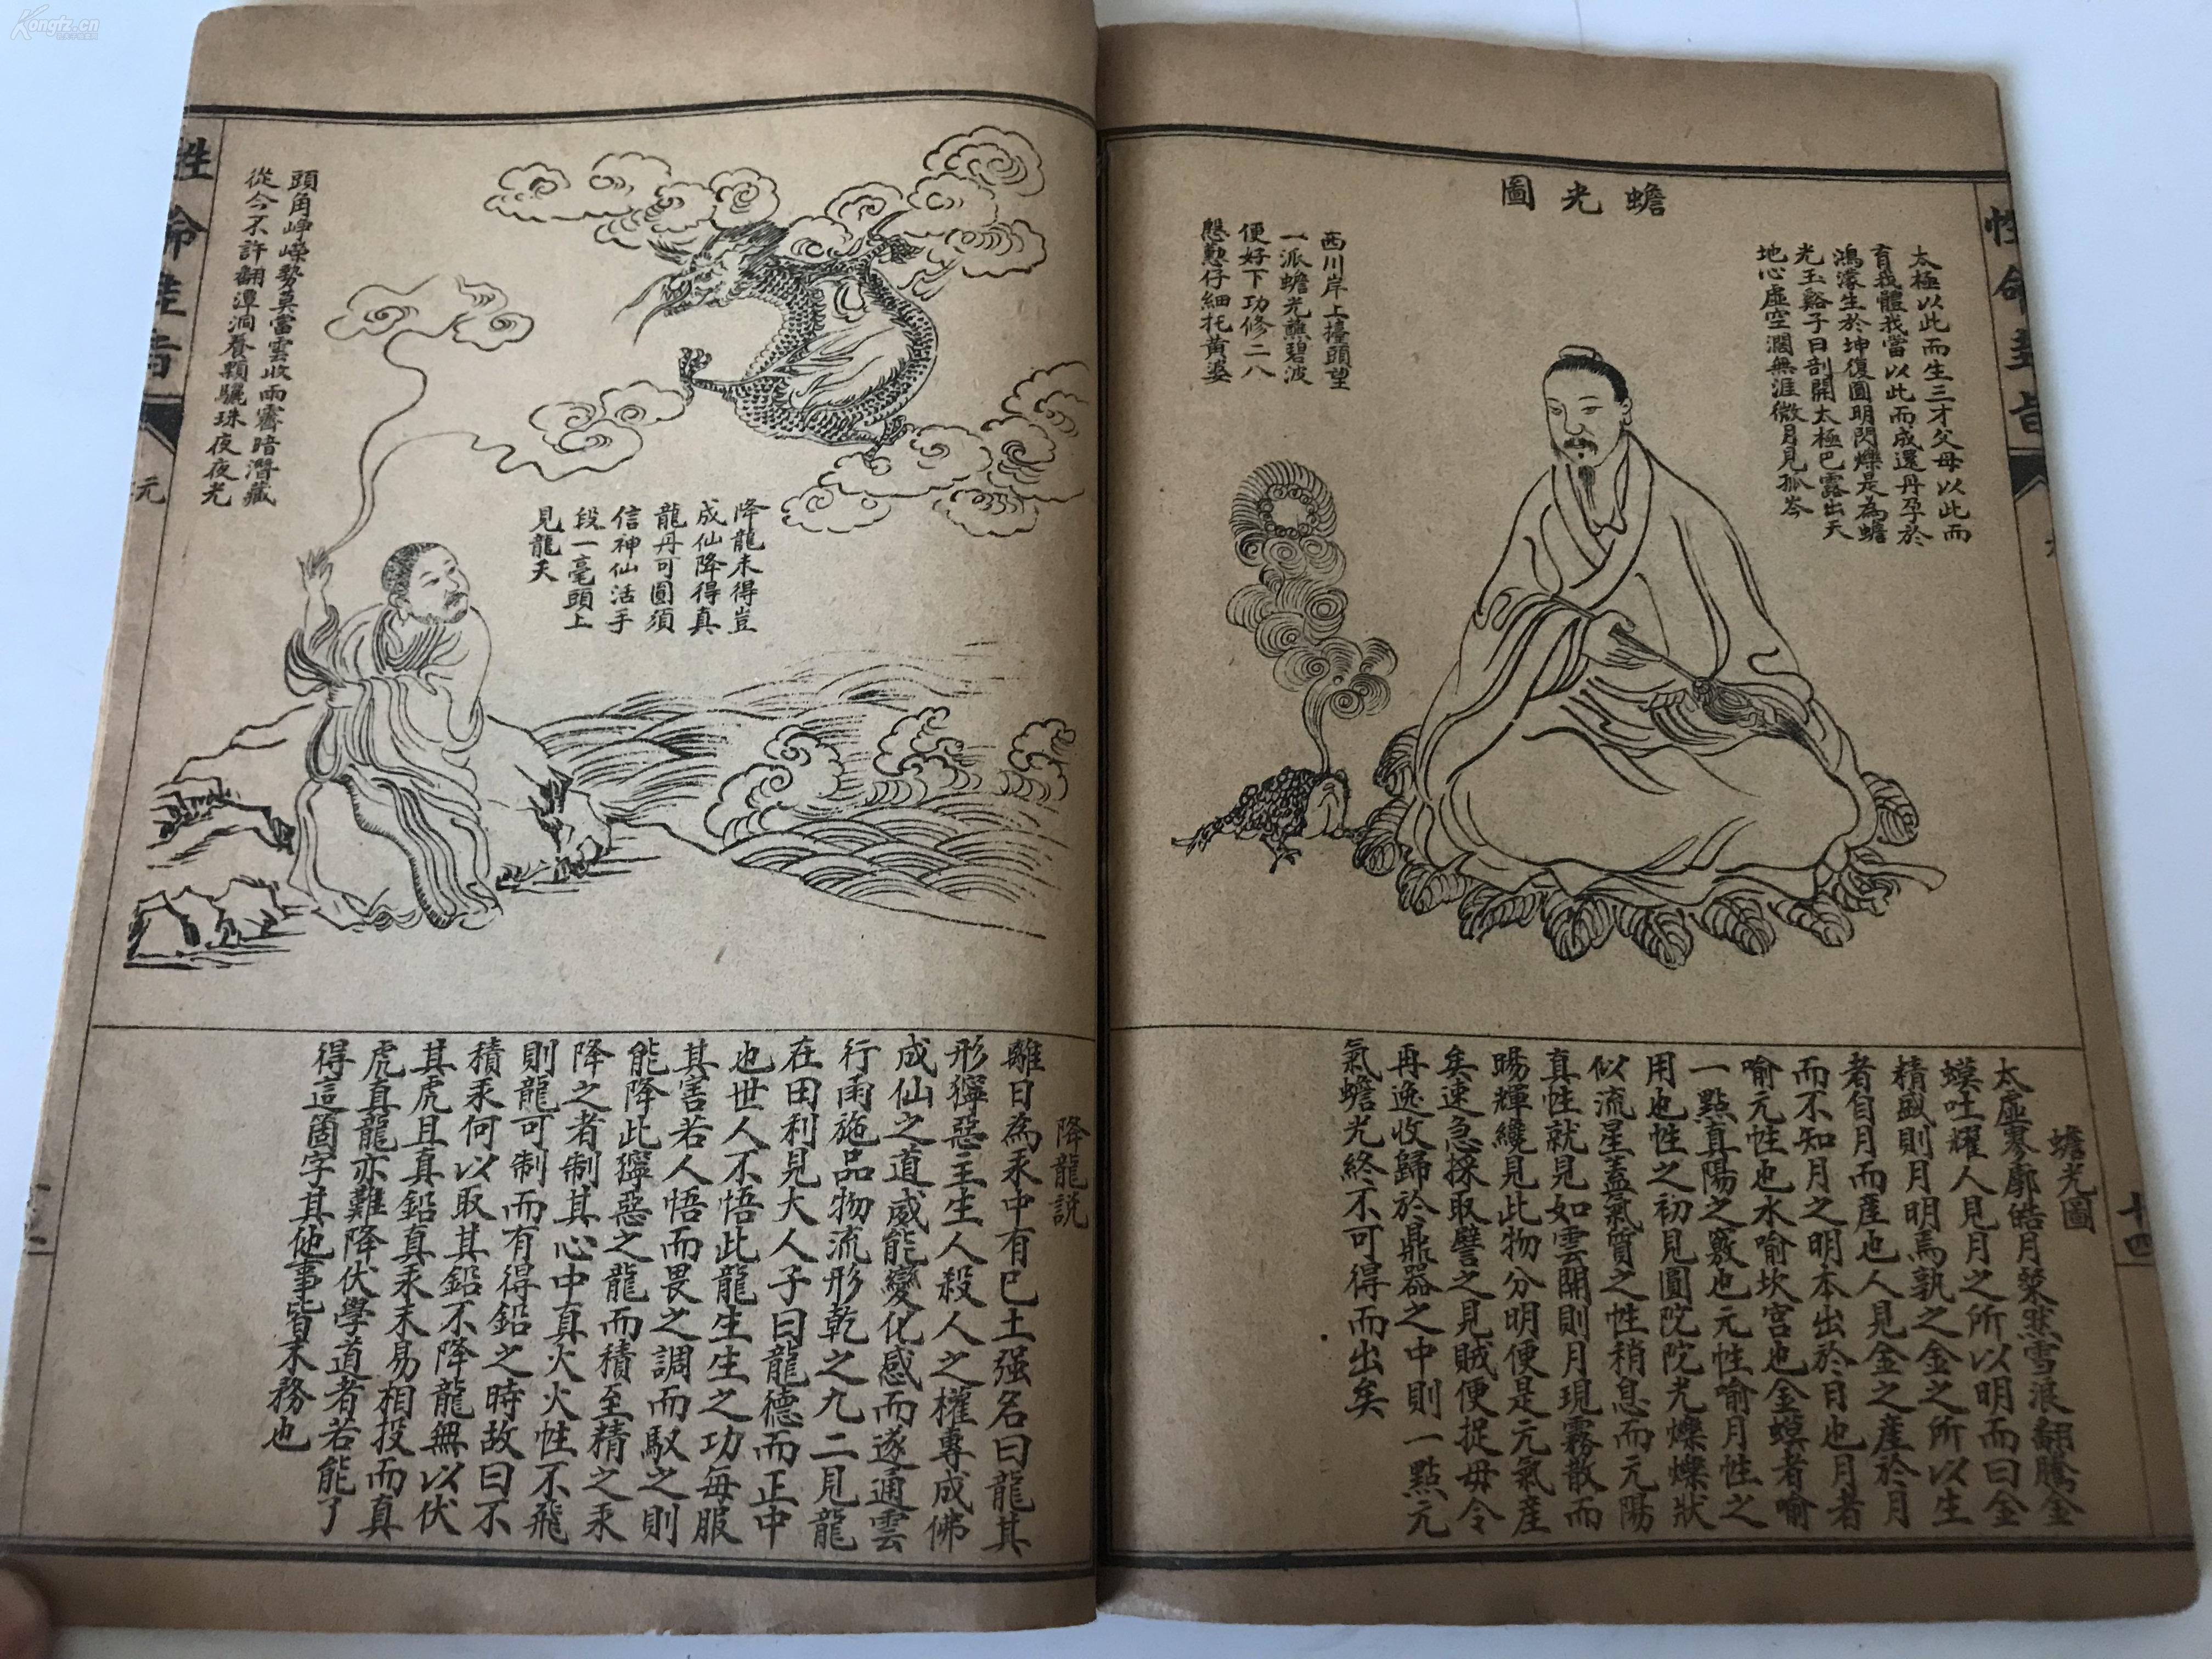 Kongfz.cn
性命圭旨
蟾光圖
太極以此而生三才父母以此而
育我體我當以此而成還丹孕於
鴻濛生於坤復圓明閃爍是為蟾
光玉谿子曰剖開太極巴露出天
地心虛空濶無涯微月見孤岑
西川岸上擡頭望
一派蟾光蘸碧波
便好下功修二八
慇懃仔細托黃婆
十四
蟾光圖
太虛寥廓皓月粲然雪浪翻騰金
蟆吐耀人見月之所以明而曰金
精盛則月明焉孰之金之所以生
者自月而產也人見金之產於月
而不知月之明本出於日也月者
喻元性也水喻坎宮也金蟆者喻
一點真陽之竅也元性喻月性之
用也性之初見圓陀陀光爍爍狀
似流星蓋氣質之性稍息而元陽
真性就見如雲開則月現霧散而
暘輝纔見此物分明便是元氣產
矣速急採取譬之見賊便捉毋令
再逸收歸於鼎器之中則一點元
氣蟾光終不可得而出矣
降龍未得豈
成仙降得真
龍丹可圓須
信神仙活手
段一毫頭上
見龍天
頭角崢嶸勢莫當雲收雨霽暗潛藏
從今不許翻潭洞養顆驪珠夜夜光
降龍説
離日為汞中有己土强名曰龍其
形獰惡主生人殺人之權專成佛
成仙之道威能變化感而遂通雲
行雨施品物流形乾之九二見龍
在田利見大人子曰龍德而正中
也世人不悟此龍生生之功每服
其害若人悟而畏之調而馭之則
能降此獰惡之龍而積至精之汞
降之者制其心中真火火性不飛
則龍可制而有得鉛之時故曰不
積汞何以取其鉛不降龍無以伏
其虎且真鉛真汞未易相投而真
虎真龍亦難降伏學道者若能了
得這箇字其他事皆末務也
性命圭旨
元